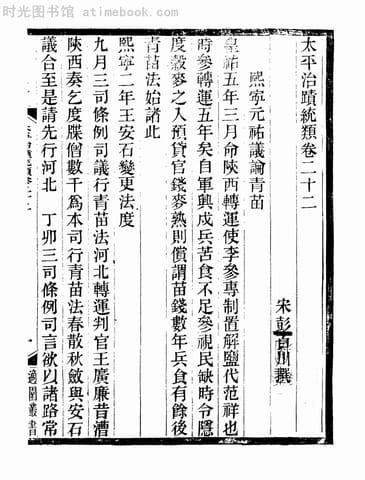 时光图书馆 atimebook.com
太平治蹟統類卷二十二
宋 彭百川 撰
熙寧元祐議論青苗
皇祐五年三月命陝西轉運使李參專制置解鹽代范祥也
時參轉運五年矣自軍興戍兵苦食不足參視民缺時令隱
度穀麥之入預貸官錢麥熟則償謂苗錢數年兵食有餘後
青苗法始諸此
熙寧二年王安石變更法度
九月三司條例司議行青苗法河北轉運判官王廣廉昔漕
陝西奏乞度牒僧數千爲本司行青苗法春散秋斂與安石
議合至是請先行河北 丁卯三司條例司言欲以諸路常
適園叢書